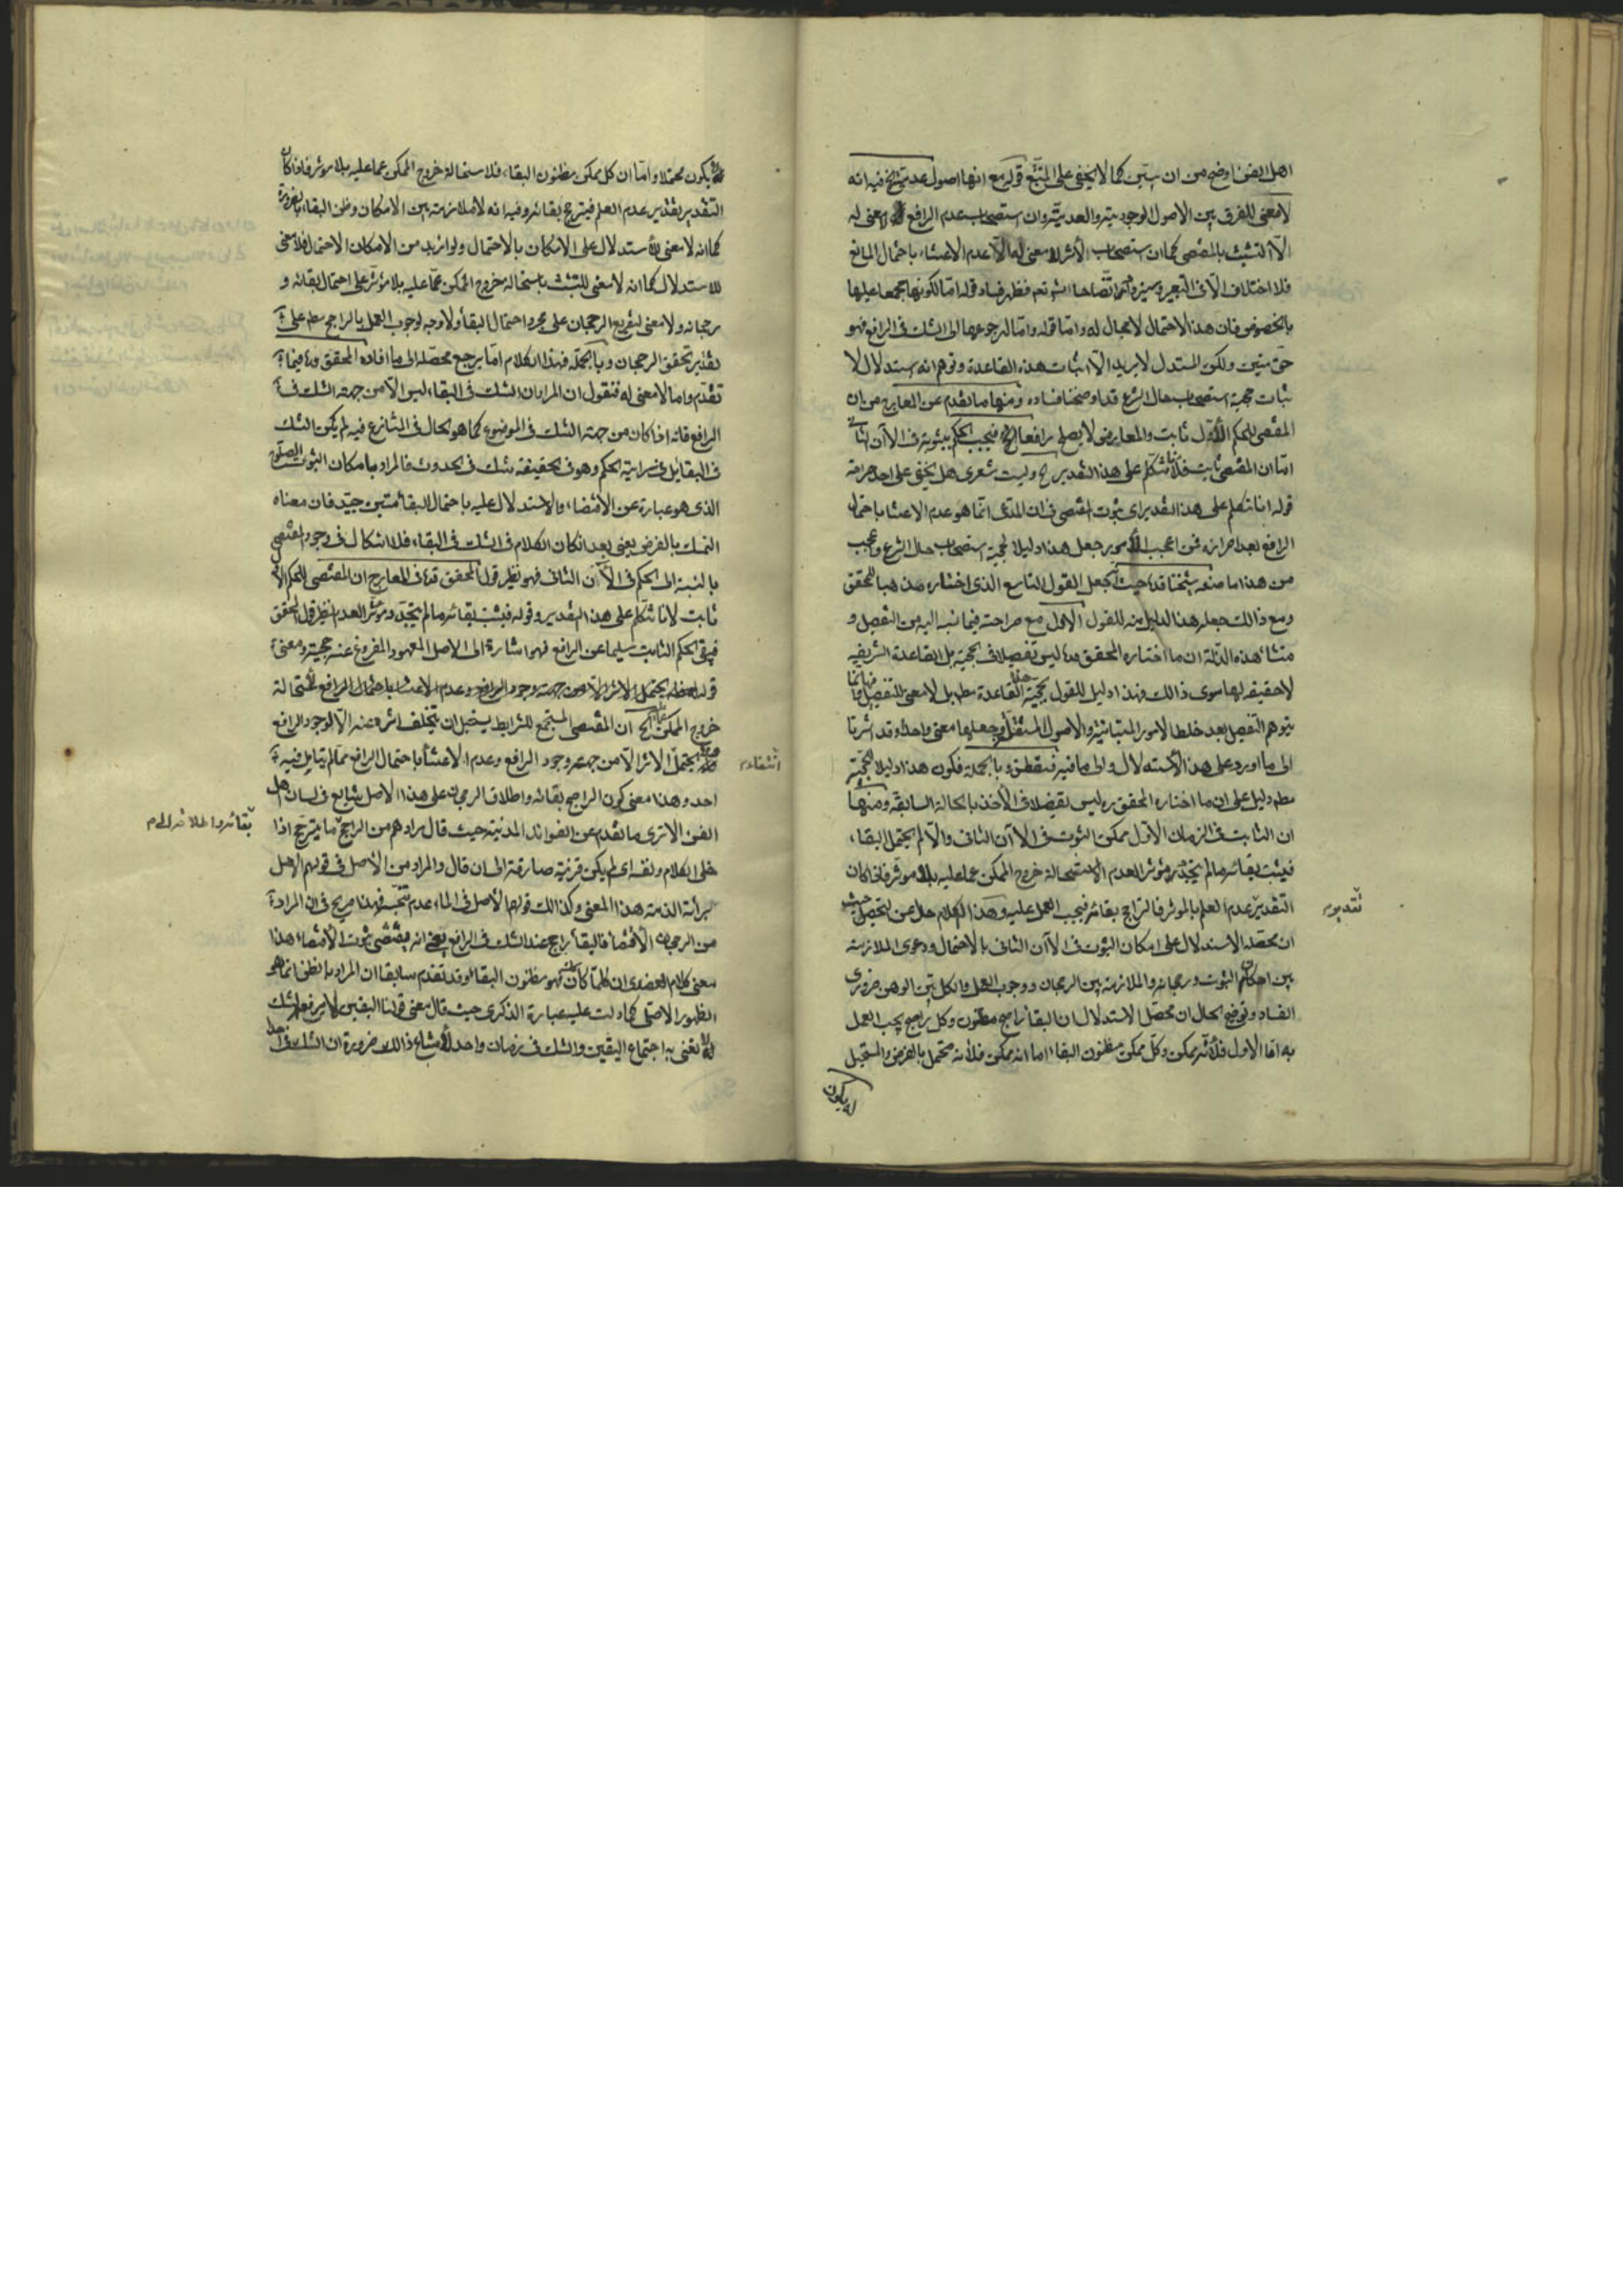 اهل الفن اوضح من ان يبين كما لا يخفى على المتتبع قوله مع انها اصول عدمية الخ فيه انه
لا معنى للفرق بين الاصول الوجودية والعدمية وان استصحاب عدم الرافع لا معنى له
الا التشبث بالمقتضى كما ان استصحاب الأثر لا معنى له الا عدم الاعتناء باحتمال المانع
فلا اختلاف الا فى التعبير فظهر فساد قوله اما لكونها مجمعا عليها
بالخصوص فان هذا الاحتمال لا مجال له واما قوله واما لرجوعها الى الشك فى الرافع فهو
حق متين ولكن المستدل لا يريد الا اثبات هذه القاعدة وتوهم انه استدلال لا
ثبات حجية استصحاب حال الشرع قد اوضحنا فساده ومنها ما تقدم عن المعارج من ان
المقتضى للحكم الأول ثابت والمعارض لا يصلح رافعا الخ فيجب الحكم بثبوته فى الآن الثانى
اما ان المقتضى ثابت فلانا نتكلم على هذا التقدير الخ وليت شعرى هل يخفى على احد مرامه
قوله انا نتكلم على هذا التقدير اى ثبوت المقتضى فان المدعى انما هو عدم الاعتناء باحتمال
الرافع بعد احرازه فمن اعجب الأمور جعل هذا دليلا لحجية استصحاب حال الشرع واعجب
من هذا ما صنعه شيخنا قده حيث جعل القول التاسع الذى اختاره مذهبا للمحقق
ومع ذالك جعل هذا الدليل منه للقول الاول مع صراحته فيما نسبه اليه من التفصيل و
منشا هذه الزلة ان ما اختاره المحقق ره ليس تفصيلا فى الحجية بل القاعدة الشريفة
لا حقيقة لها سوى ذالك فهذا دليل للقول بحجية القاعدة مطم بل لا معنى للتفصيل فيها انما
يتوهم التفصيل بعد خلط الامور المتباينة والاصول المستقلة وجعلها معنى واحدا وقد اشرنا
الى ما اورد على هذا الاستدلال والى ما فيه فتفطن وبالجملة فكون هذا دليلا للحجية
مطم دليل على ان ما اختاره المحقق ره ليس تفصيلا فى الأخذ بالحالة السابقة ومنها
ان الثابت فى الزمان الأول ممكن الثبوت فى الآن الثانى والا لم يحتمل البقاء
فيثبت بقائه ما لم يتجدد مؤثر العدم لاستحالة خروج الممكن عما عليه بلا مؤثر فاذا كان
التقدير عدم العلم بالمؤثر فالراجح بقائه فيجب العمل عليه وهذا الكلام خال عن التحصيل حيث
ان محصله الاستدلال على امكان الثبوت فى الآن الثانى بالاحتمال ودعوى الملازمة
بين امكان الثبوت ورجحانه والملازمة بين الرجحان ووجوب العمل والكل بين الوهن ضرورى
الفساد وتوضيح الحال ان محصل الاستدلال ان البقاء راجح مظنون وكل راجح يجب العمل
به اما الاول فلأنه ممكن وكل ممكن مظنون البقاء اما انه ممكن فلأنه محتمل بالفرض والمستحيل
لا يكون
تقديره
لا يكون محتملا واما ان كل ممكن مظنون البقاء فلاستحالة خروج الممكن عما عليه بلا مؤثر فاذا كان
التقدير تقدير عدم العلم فيترجح بقائه وفيه انه لا ملازمة بين الامكان وظن البقاء بالضرورة
كما انه لا معنى للاستدلال على الامكان بالاحتمال ولو اريد من الامكان الاحتمال فلا معنى
للاستدلال كما انه لا معنى للتشبث باستحالة خروج الممكن عما عليه بلا مؤثر على احتمال بقائه و
رجحانه ولا معنى لتفريع الرجحان على مجرد احتمال البقاء ولا وجه لوجوب العمل بالراجح مطم على
تقدير تحقق الرجحان وبالجملة فهذا الكلام اما يرجع محصله الى ما افاده المحقق ره فيما
تقدم واما لا معنى له فنقول ان المراد ان الشك فى البقاء ليس الا من جهة الشك فى
الرافع فانه اذا كان من جهة الشك فى الموضوع كما هو الحال فى المتنازع فيه لم يكن الشك
فى البقاء بل فى سراية الحكم وهو فى الحقيقة شك فى الحدوث فالمراد بامكان الثبوت
الذى هو عبارة عن الاقتضاء والاستدلال عليه باحتمال البقاء متين جيد فان معناه
التمسك بالفرض يعنى بعد ان كان الكلام فى الشك فى البقاء فلا اشكال فى وجود المقتضى
بالنسبة الى الحكم فى الآن الثانى فهو نظير قول المحقق قده فى المعارج ان المقتضى للحكم الأول
ثابت لانا نتكلم على هذا التقدير وقوله فيثبت بقائه ما لم يتجدد مؤثر العدم نظير قول المحقق
فيبقى الحكم الثابت سليما عن الرافع فهو اشارة الى الاصل المعهود المفروغ عنه حجيته ومعنى
قوله الا من جهة وجود الرافع وعدم الاعتناء باحتمال الرافع لاستحالة
خروج الممكن الخ ان المقتضى المستجمع للشرايط يستحيل ان يتخلف اثره عنه الا لوجود الرافع
الاثر الا من جهة وجود الرافع وعدم الاعتناء باحتمال الرافع مما لم يتامل فيه
احد وهذا معنى كون الراجح بقائه واطلاق الرجحان على هذا الاصل شايع فى لسان اهل
الفن الا ترى ما تقدم عن الفوائد المدنية حيث قال مرادهم من الراجح ما يترجح اذا
خلى الكلام ونفسه اى لم يكن قرينة صارفة الى ان قال والمراد من الأصل فى قولهم الاصل
برائة الذمة هذا المعنى وكذالك قولهم الأصل فى الماء عدم تنجسه فهذا صريح فى ان المراد
من الرجحان الاقتضاء فالبقاء راجح عند الشك فى الرافع يعنى انه مقتضى ثبوت الاقتضاء هذا
معنى كلام العضدى ان كلما كان فهو مظنون البقاء وقد تقدم سابقا ان المراد بالظن انما هو
الظهور الاصلى كما دلت عليه عبارة الذكرى حيث قال معنى قولنا اليقين لا يرفعه الشك
لا نعنى به اجتماع اليقين والشك فى زمان واحد لامتناع ذالك ضرورة ان الشك فى احد
بقائه واطلاقه